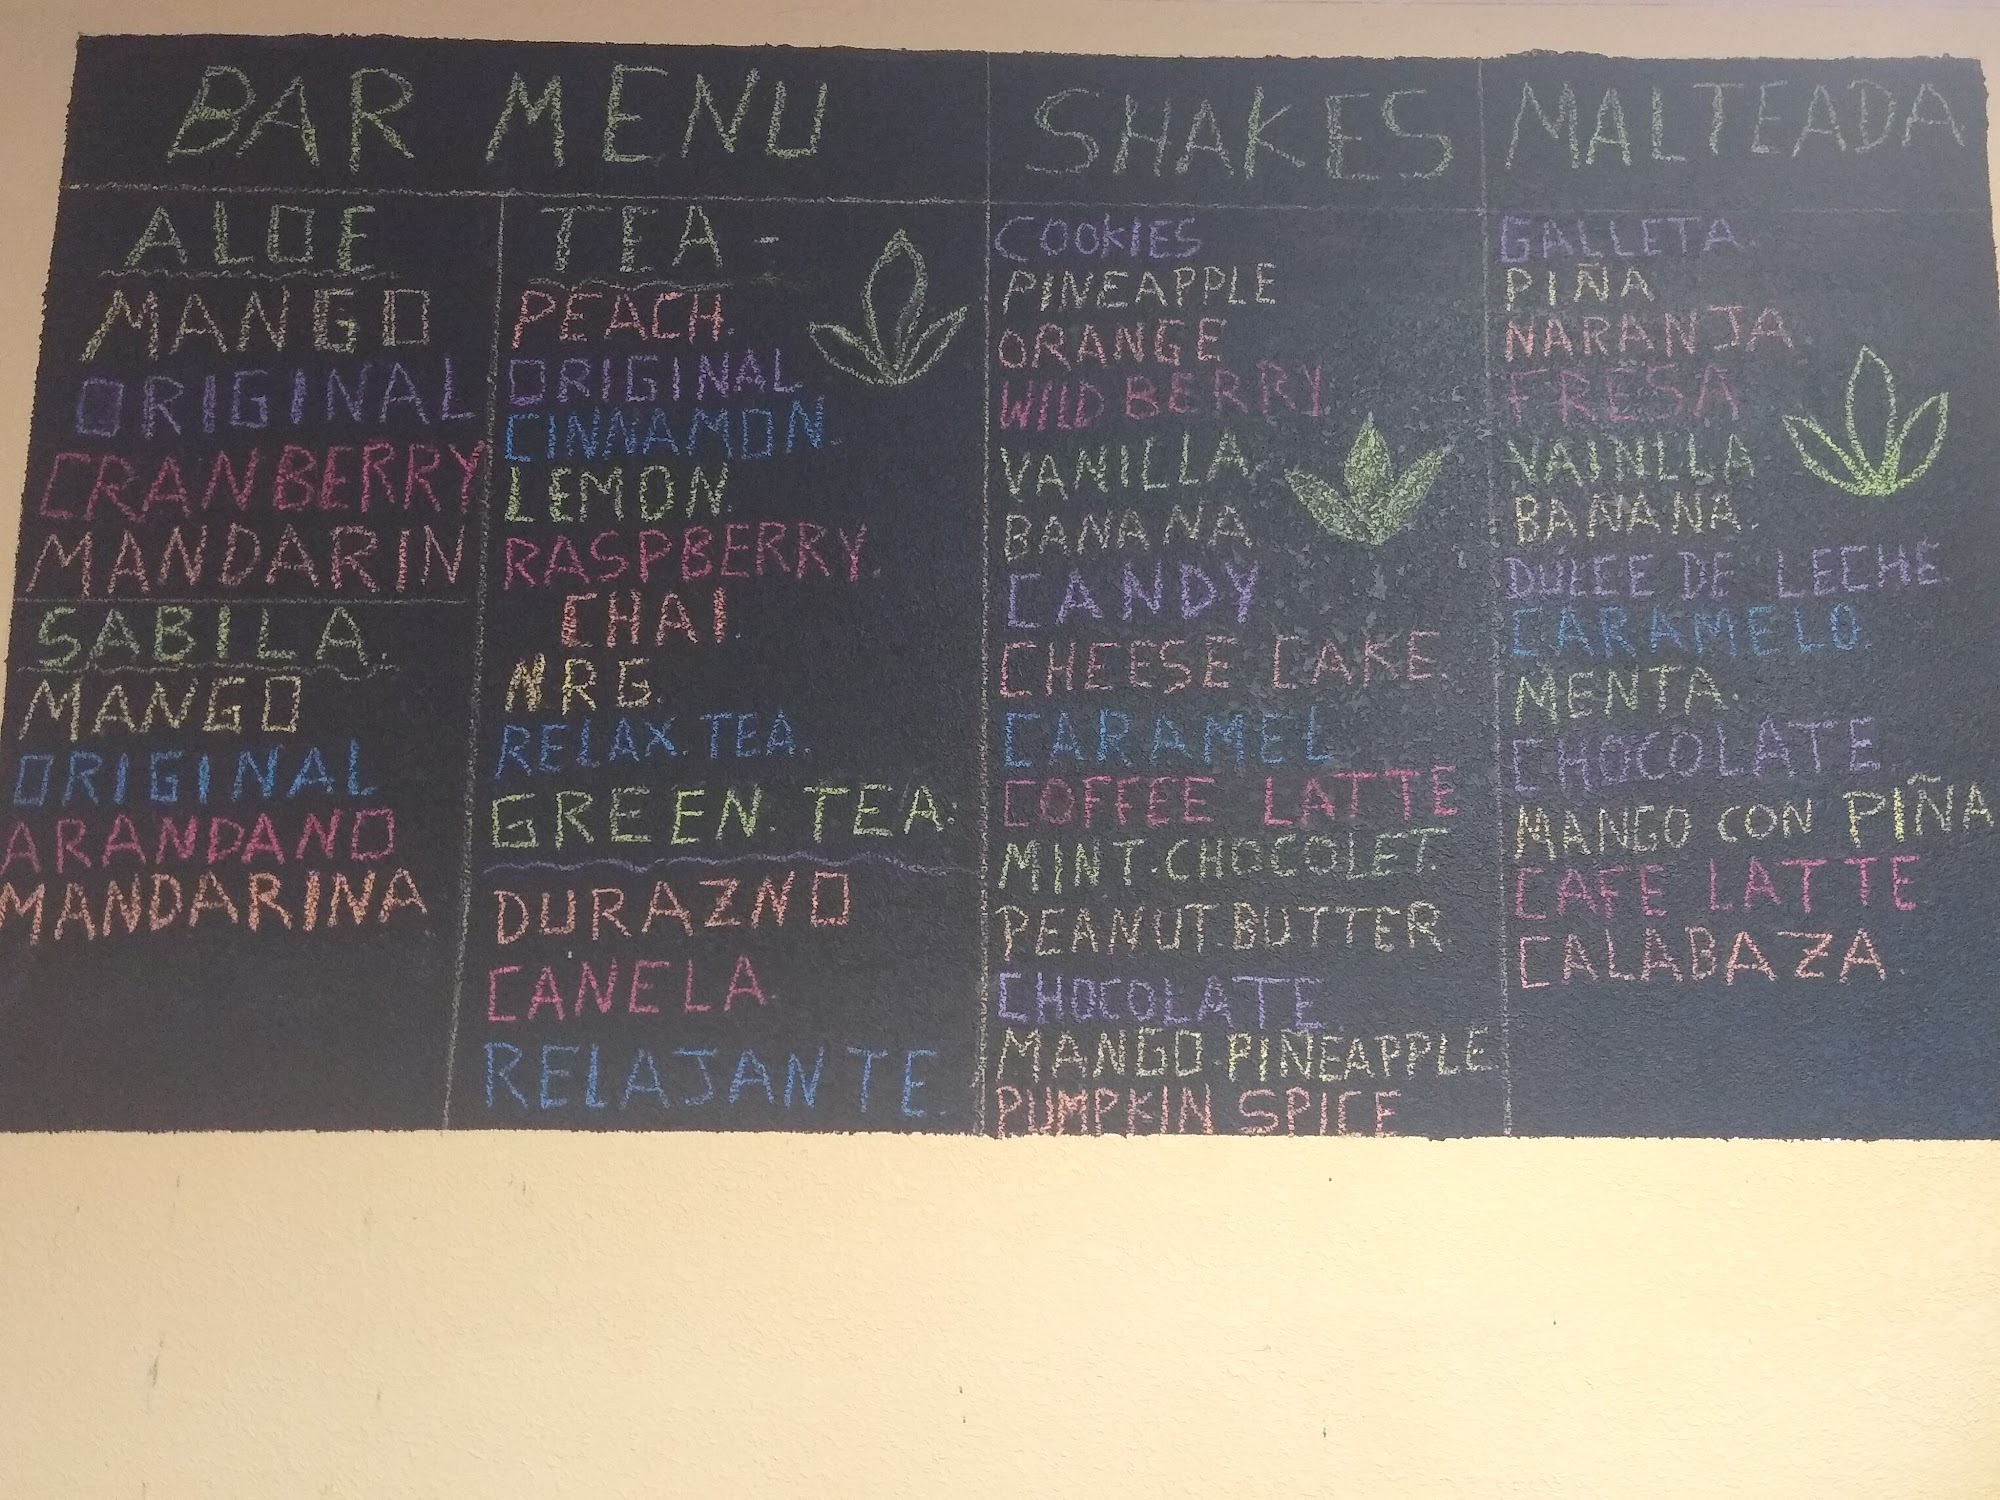 BAR MENU
ALOE
MANGO
ORIGINAL
CRANBERRY
MANDARIN
SABILA.
MANGO
ORIGINAL
ARANDANO
MANDARINA
TEA-
PEACH.
ORIGINAL
CINNAMON.
LEMON.
RASPBERRY.
CHAI.
NRG.
RELAX.TEA.
GREEN.TEA.
DURAZNO
CANELA.
RELAJANTE.
SHAKES
COOKIES
PINEAPPLE
ORANGE
WILD BERRY.
VANILLA.
BANANA
CANDY
CHEESE CAKE.
CARAMEL
COFFEE LATTE
MINT.CHOCOLET.
PEANUT.BUTTER.
CHOCOLATE.
MANGO.PINEAPPLE
PUMPKIN SPICE
MALTEADA
GALLETA.
PIÑA
NARANJA.
FRESA
VAINLLA
BANANA.
DULCE DE LECHE.
CARAMELO.
MENTA.
CHOCOLATE.
MANGO CON PIÑA
CAFE LATTE
CALABAZA.